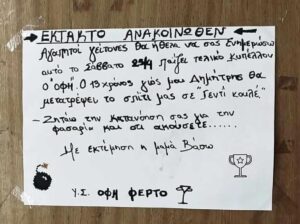 ΕΚΤΑΚΤΟ ΑΝΑΚΟΙΝΩΘΕΝ
Αγαπητοί γείτονες θα ήθελα να σας ενημερώσω
αυτό το Σάββατο 25/4 παίζει τελικό κυπέλλου
ο ΟΦΗ. Ο 19χρονος γιώς μου Δημήτρης θα
μετατρέψει το σπίτι μας σε "Γεντί κουλέ".
- Ζητάω την κατανόηση σας για την
φασαρία και ότι ακούσετε.....
Με εκτίμηση η μαμά Βάσω
Υ.Σ. ΟΦΗ ΦΕΡΤΟ